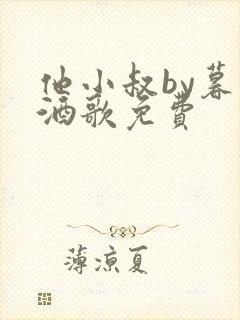 他小叔by暮
酒歌免费
薄凉夏